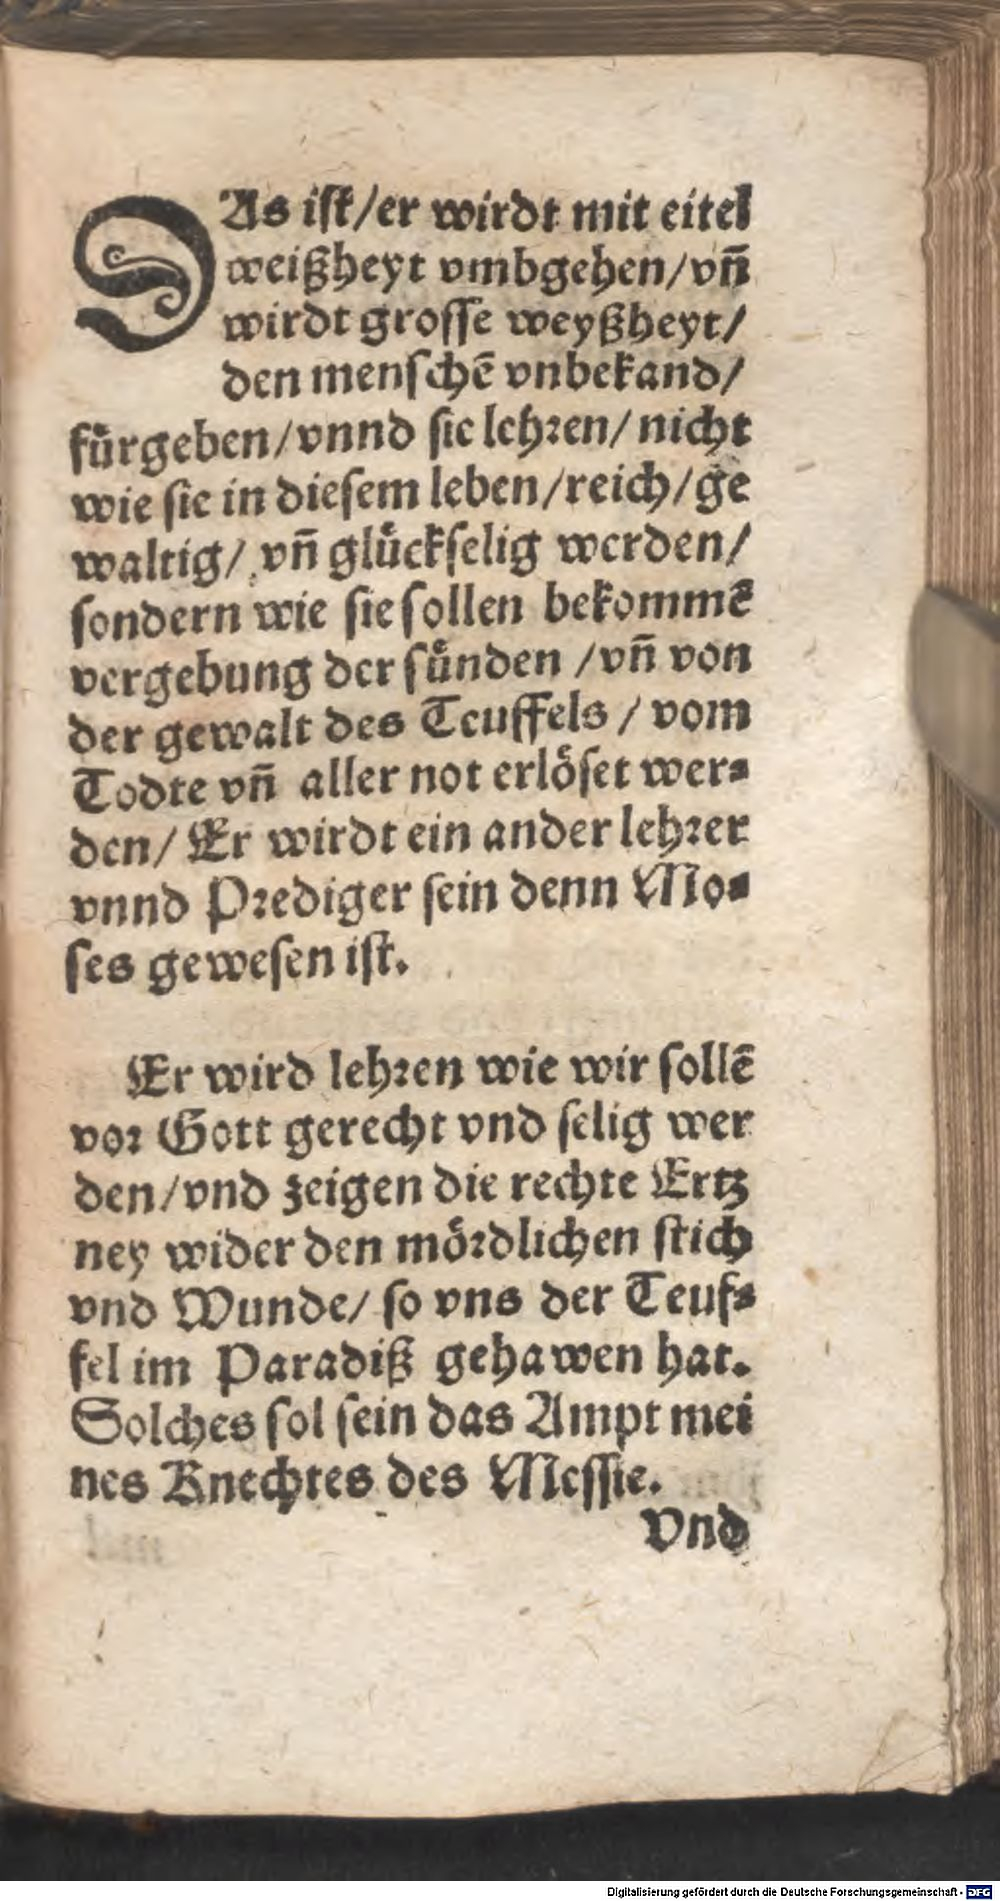 DAs ist/er wirdt mit eitel
weißheyt vmbgehen/vñ
wirdt grosse weyßheyt/
den menschẽ vnbekand/
fuͤrgeben/vnnd sie lehren/nicht
wie sie in diesem leben/reich/ge
waltig/ vñ gluͤckselig werden/
sondern wie sie sollen bekommẽ
vergebung der suͤnden /vñ von
der gewalt des Teuffels / vom
Todte vñ aller not erloͤset wer⸗
den/ Er wirdt ein ander lehrer
vnnd Prediger sein denn Mo⸗
ses gewesen ist.
Er wird lehren wie wir sollẽ
vor Gott gerecht vnd selig wer
den/vnd zeigen die rechte Ertz
ney wider den moͤrdlichen stich
vnd Wunde/ so vns der Teuf⸗
fel im Paradiß gehawen hat.
Solches sol sein das Ampt mei
nes Knechtes des Messie.
Vnd
Digitalisierung gefördert durch die Deutsche Forschungsgemeinschaft - DFG